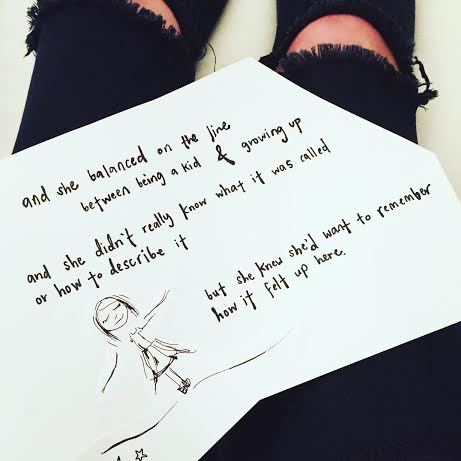 and she balanced on the line
between being a kid & growing up
and she didn't really know what it was called
or how to describe it
but she knew she'd want to remember
how it felt up here.